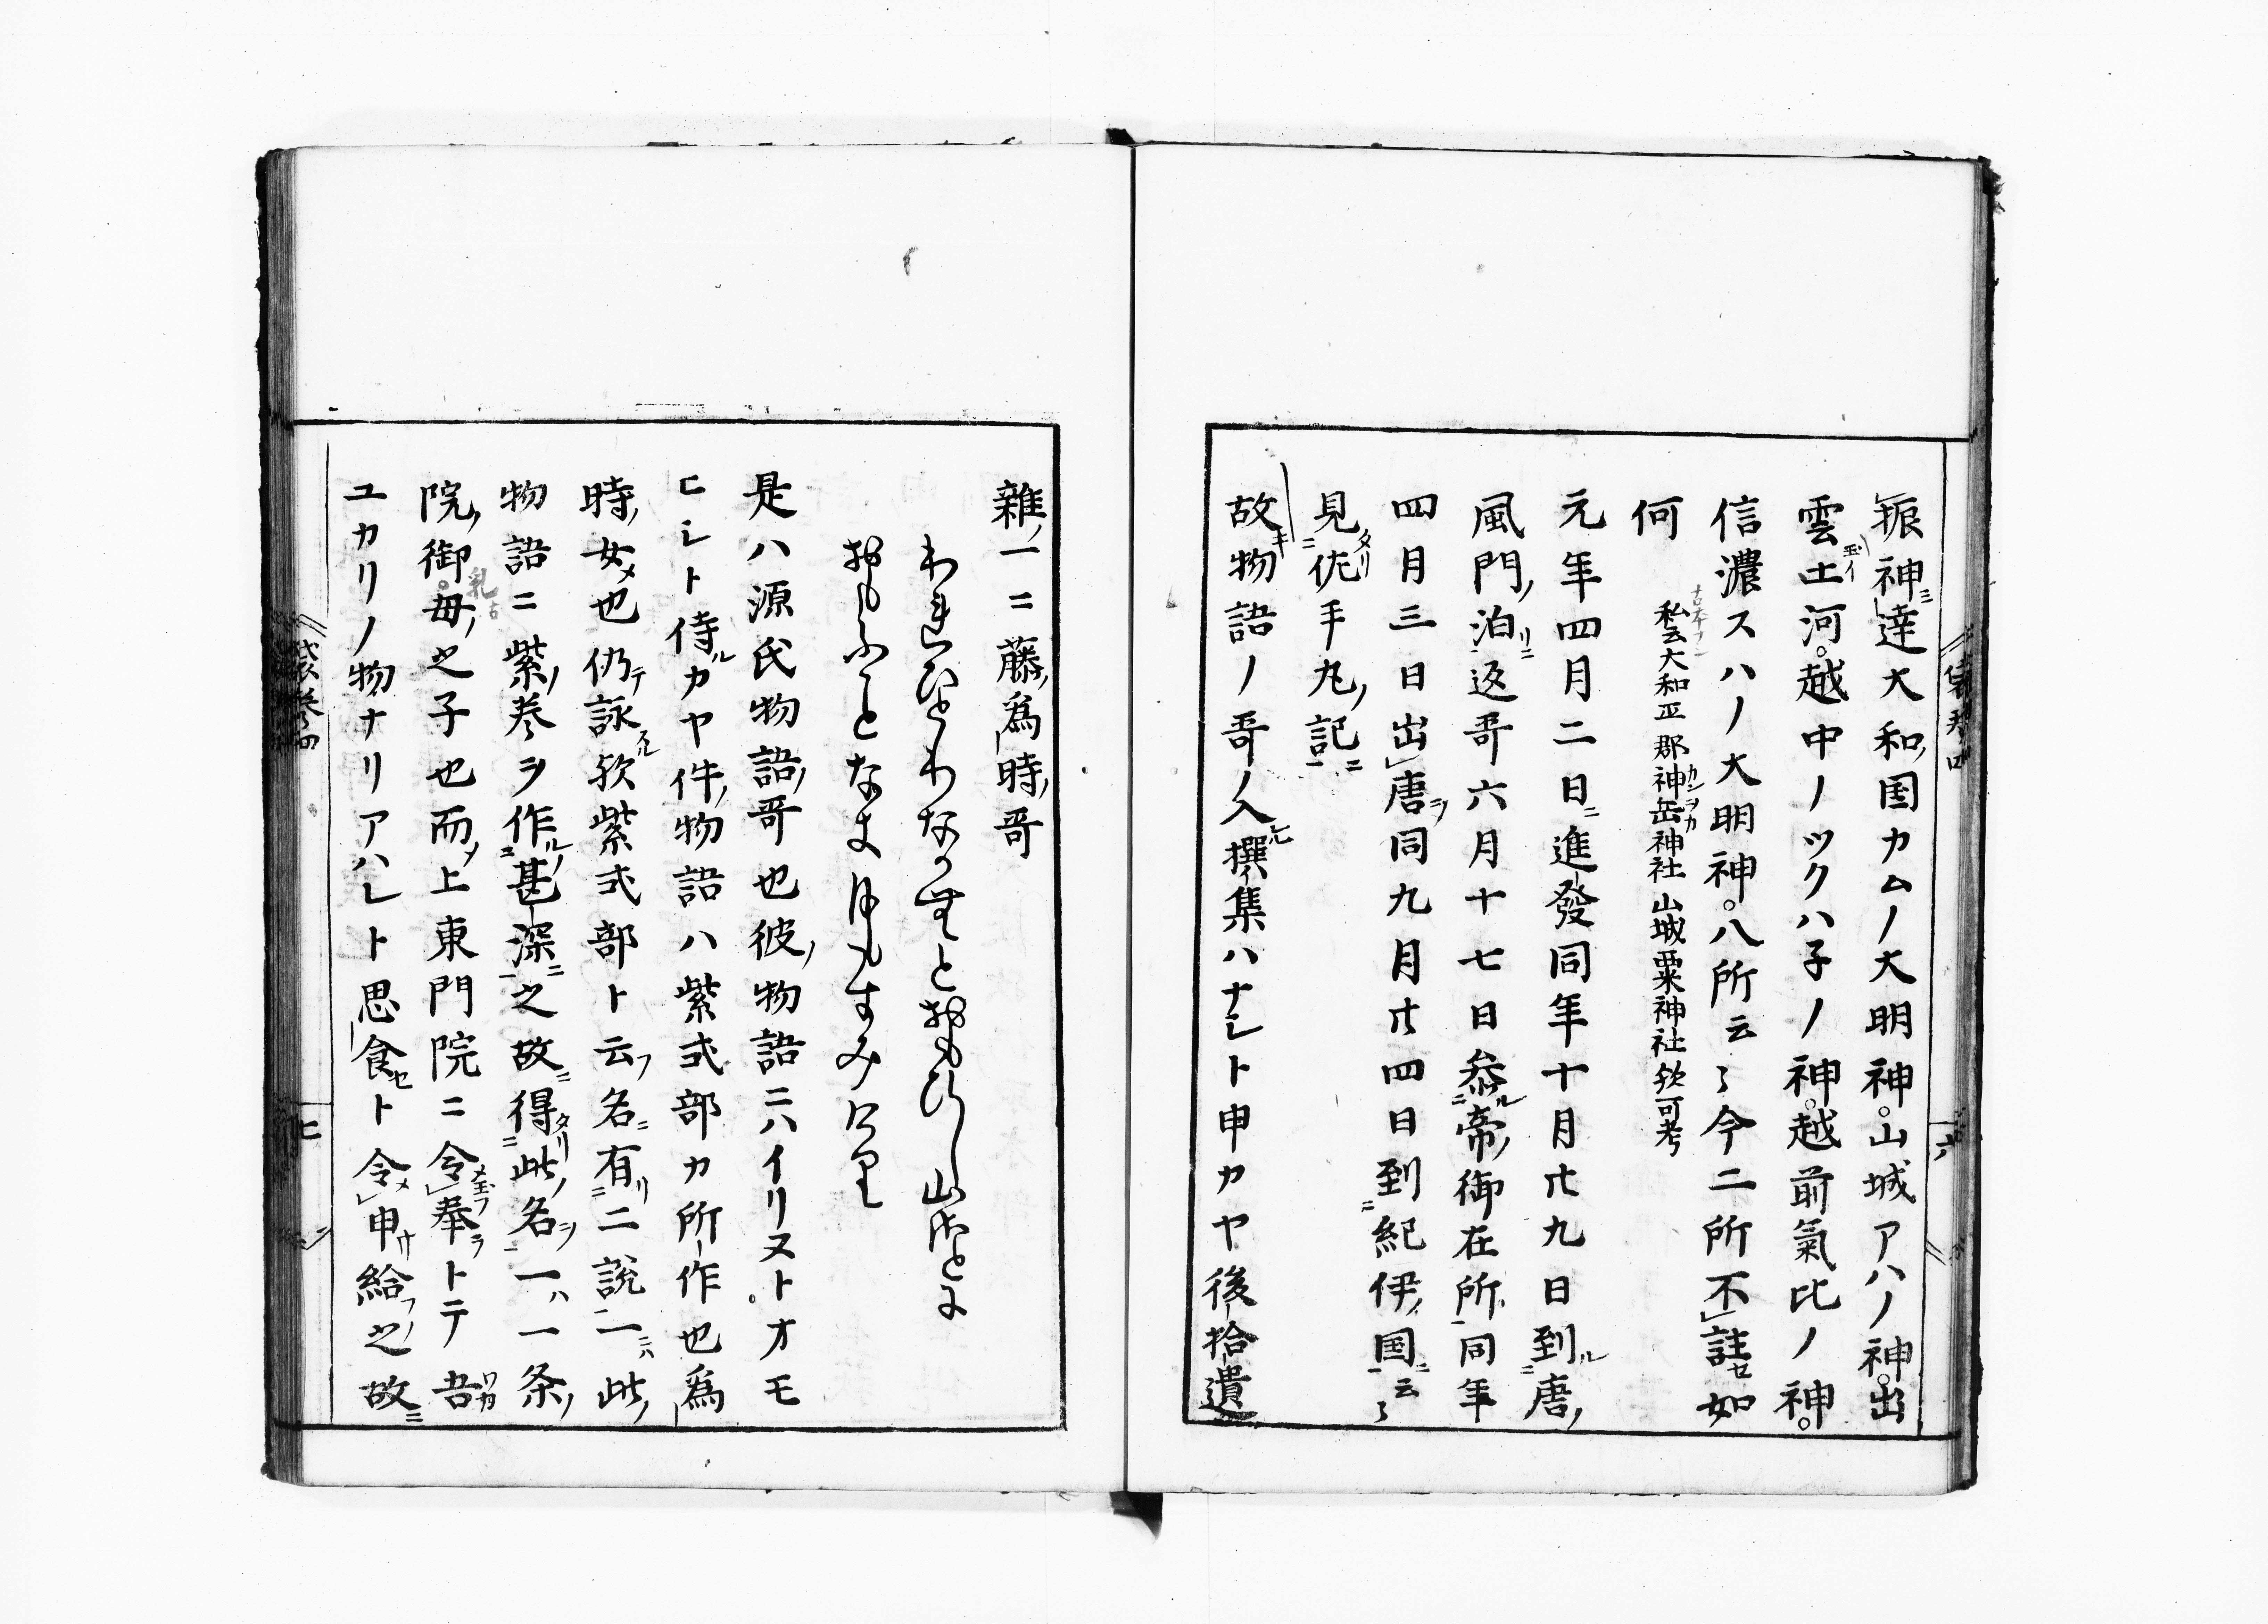 振神達大和国カムノ大明神山城アハノ神出
雲土河越中ノツクハ子ノ神越前氣比ノ神
信濃スハノ大明神八所云々今二所不註如
何
私云大和正郡神岳神社山城粟神社欤可考
元年四月二日進發同年十月廿九日到唐
風門泊返哥六月十七日叅帝御在所同年
四月三日出唐同九月廿四日到紀伊国云々
見佐手丸記
故物語ノ哥ノ入撰集ハナシト申カヤ後拾遺
雜一ニ藤爲時哥
われひとりなかむとおもひし山さとに
おもふことなき月もすみけり
是ハ源氏物語哥也彼物語ニハイリヌトオモ
ヒシト侍ルカヤ件物語ハ紫式部カ所作也爲
時女也仍詠欤紫式部ト云名有二説一此
物語ニ紫巻ヲ作甚深之故得此名一ハ一条
院御母之子也而上東門院ニ令奉トテ吾
ユカリノ物ナリアハレト思食ト令申給之故